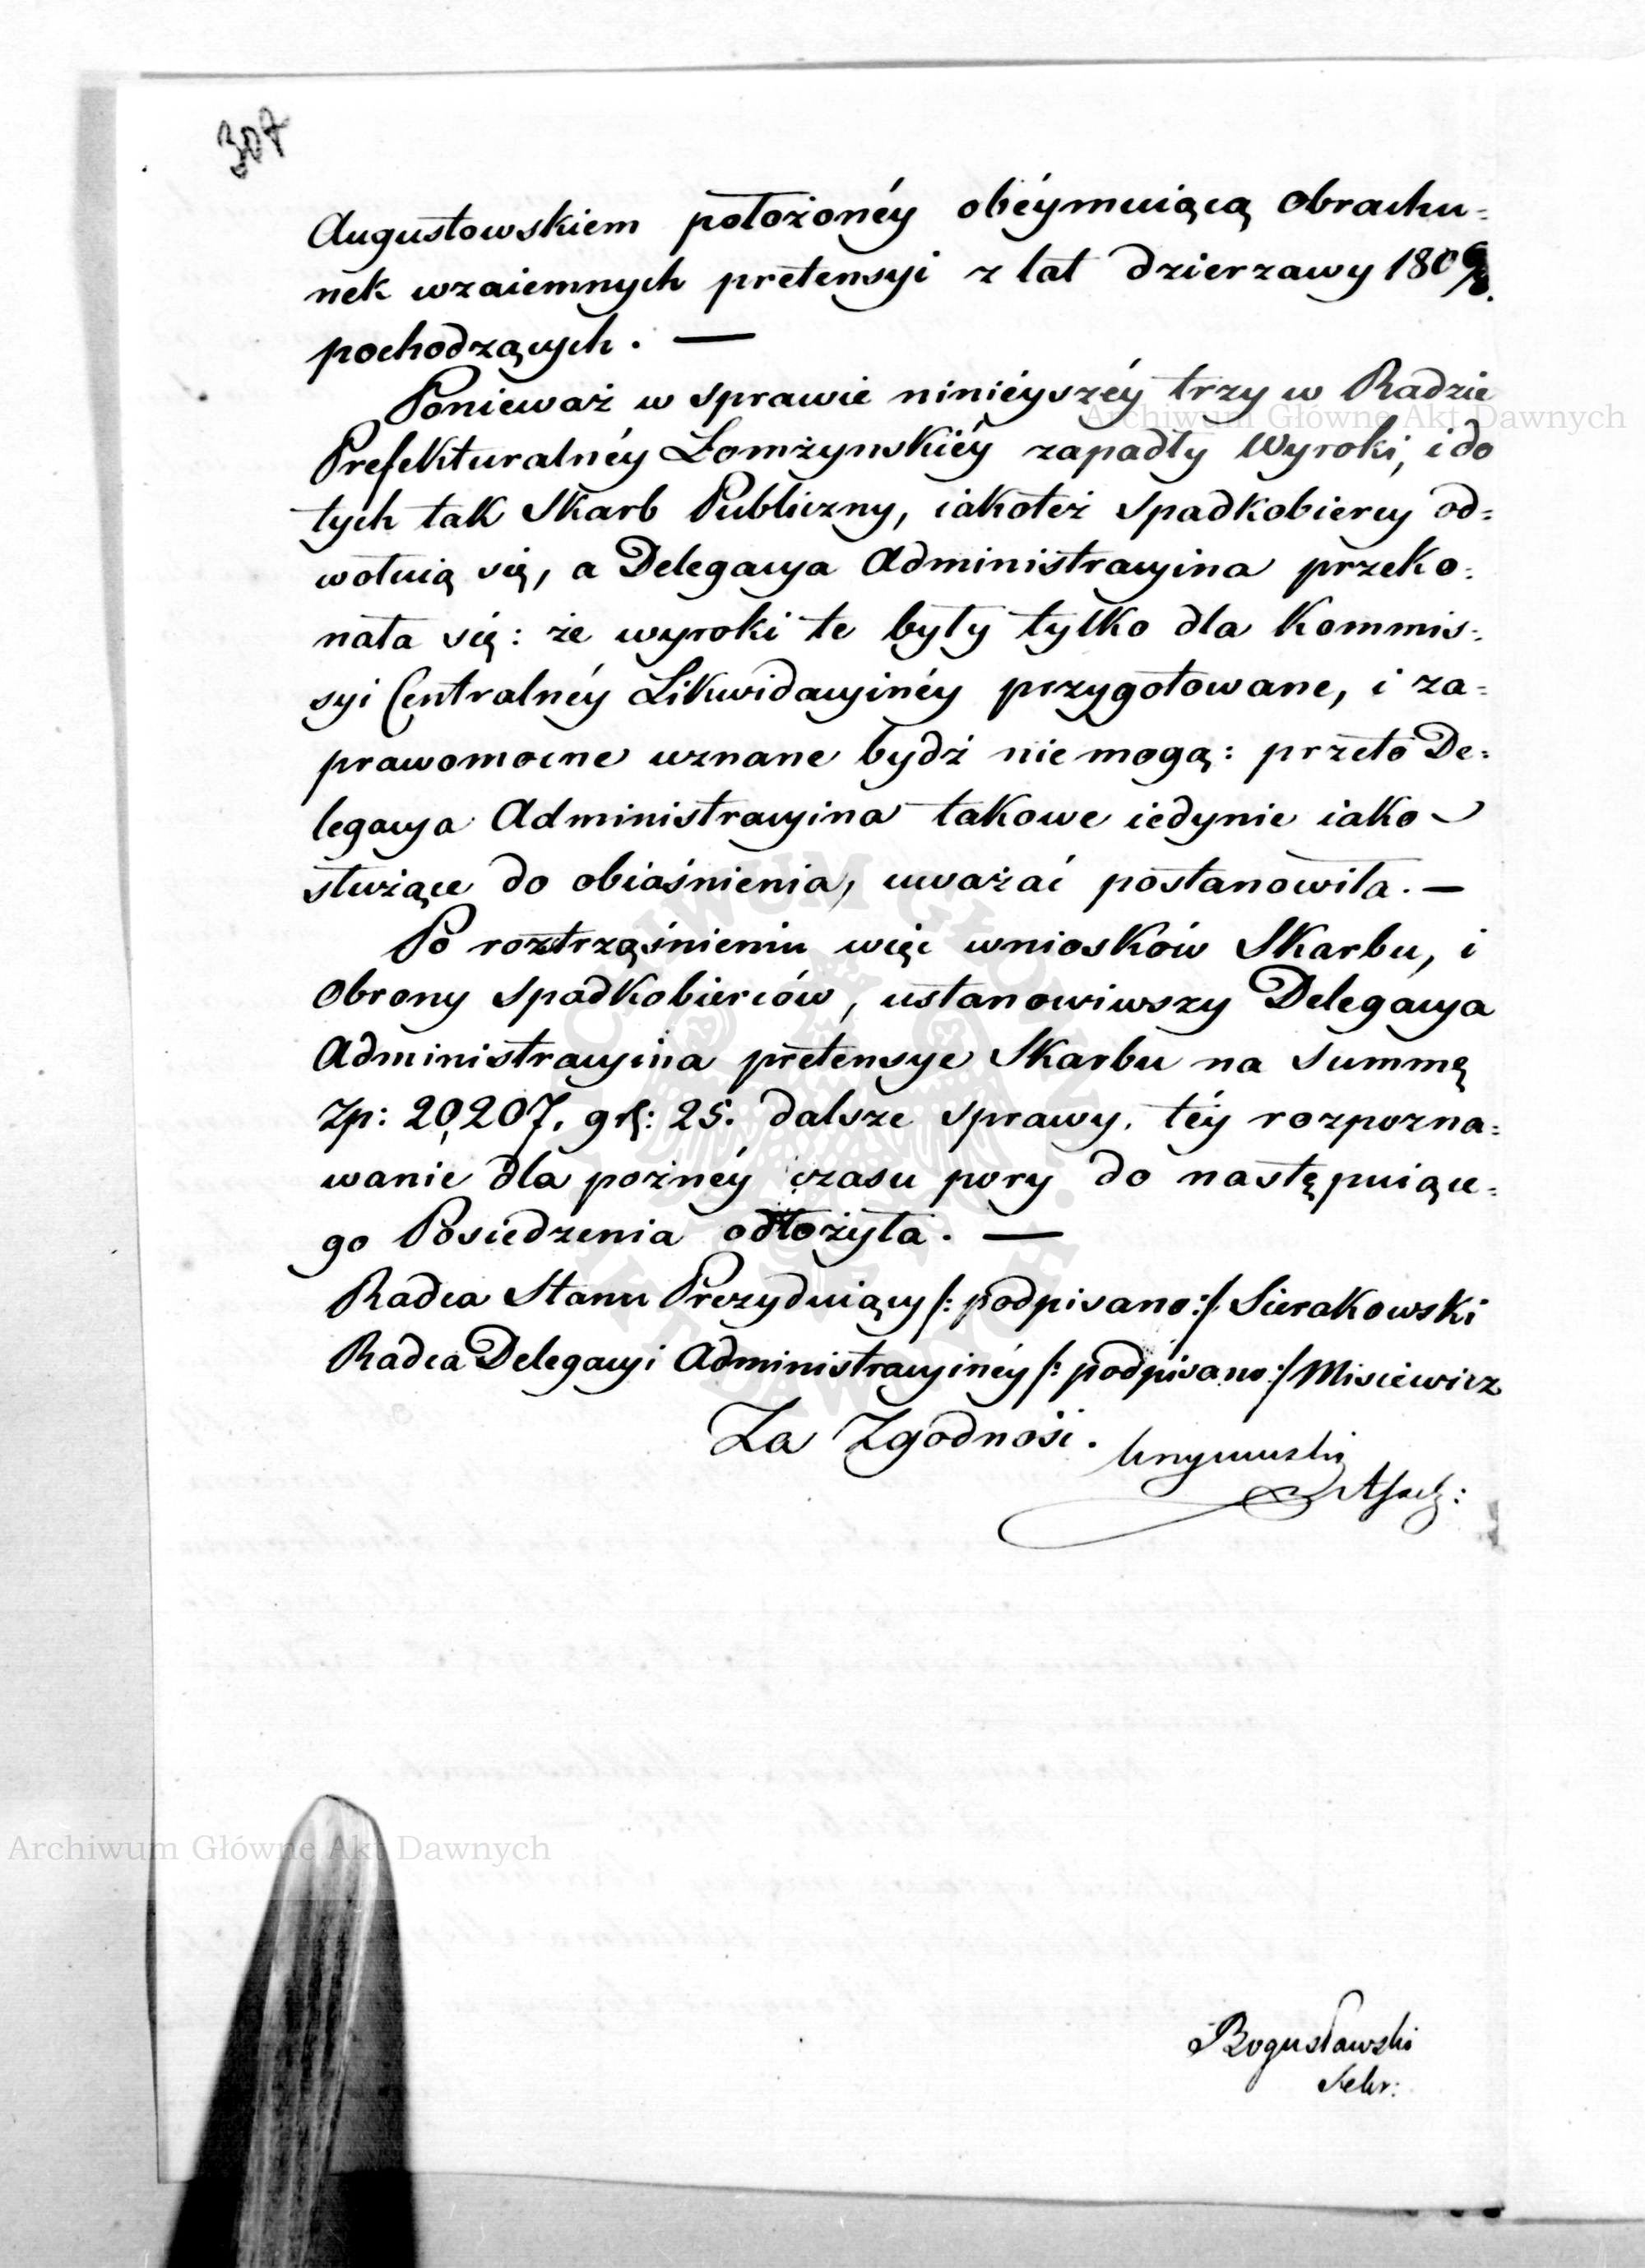 307
Augustowskiem położonéy obéymuiącą Obrachu-
nek wzaiemnych pretensyi z lat dzierzawy 180
pochodzących. —
Ponieważ w sprawie ninieyszéy trzy w Radzie
Archiwum Główne Akt Dawnych
Prefekturalnéy Łomżynskiéy zapadły Wyroki, i do
tych tak Skarb Publiczny, iakoteż Spadkobiercy od=
wołuią się, a Delegacya Administracyina przeko=
nała się: że wyroki te były tylko dla Kommis=
syi Centralnéy Likwidacyinéy przygotowane, i za=
prawomocne uznane bydź nie mogą: przeto De=
legacya Administracyina takowe iedynie iako
służące do obiaśnienia, uważać postanowiła. —
Po roztrząśnieniu więc wniosków Skarbu, i
Obrony Spadkobierców, ustanowiwszy Delegacya
Administracyina pretensye Skarbu na Summę
Zp: 20,207. gr: 25. dalsze sprawy, téy rozpozna=
wanie dla poźnéy czasu pory do następuiące=
go Posiedzenia odłożyła. —
Radca Stanu Prezyduiący /: podpisano:/ Sierakowski
Radca Delegacyi Administracyinéy /: podpisano:/ Misiewicz
Za Zgodność.
Archiwum Główne Akt Dawnych
Bogusławski
Sekr: